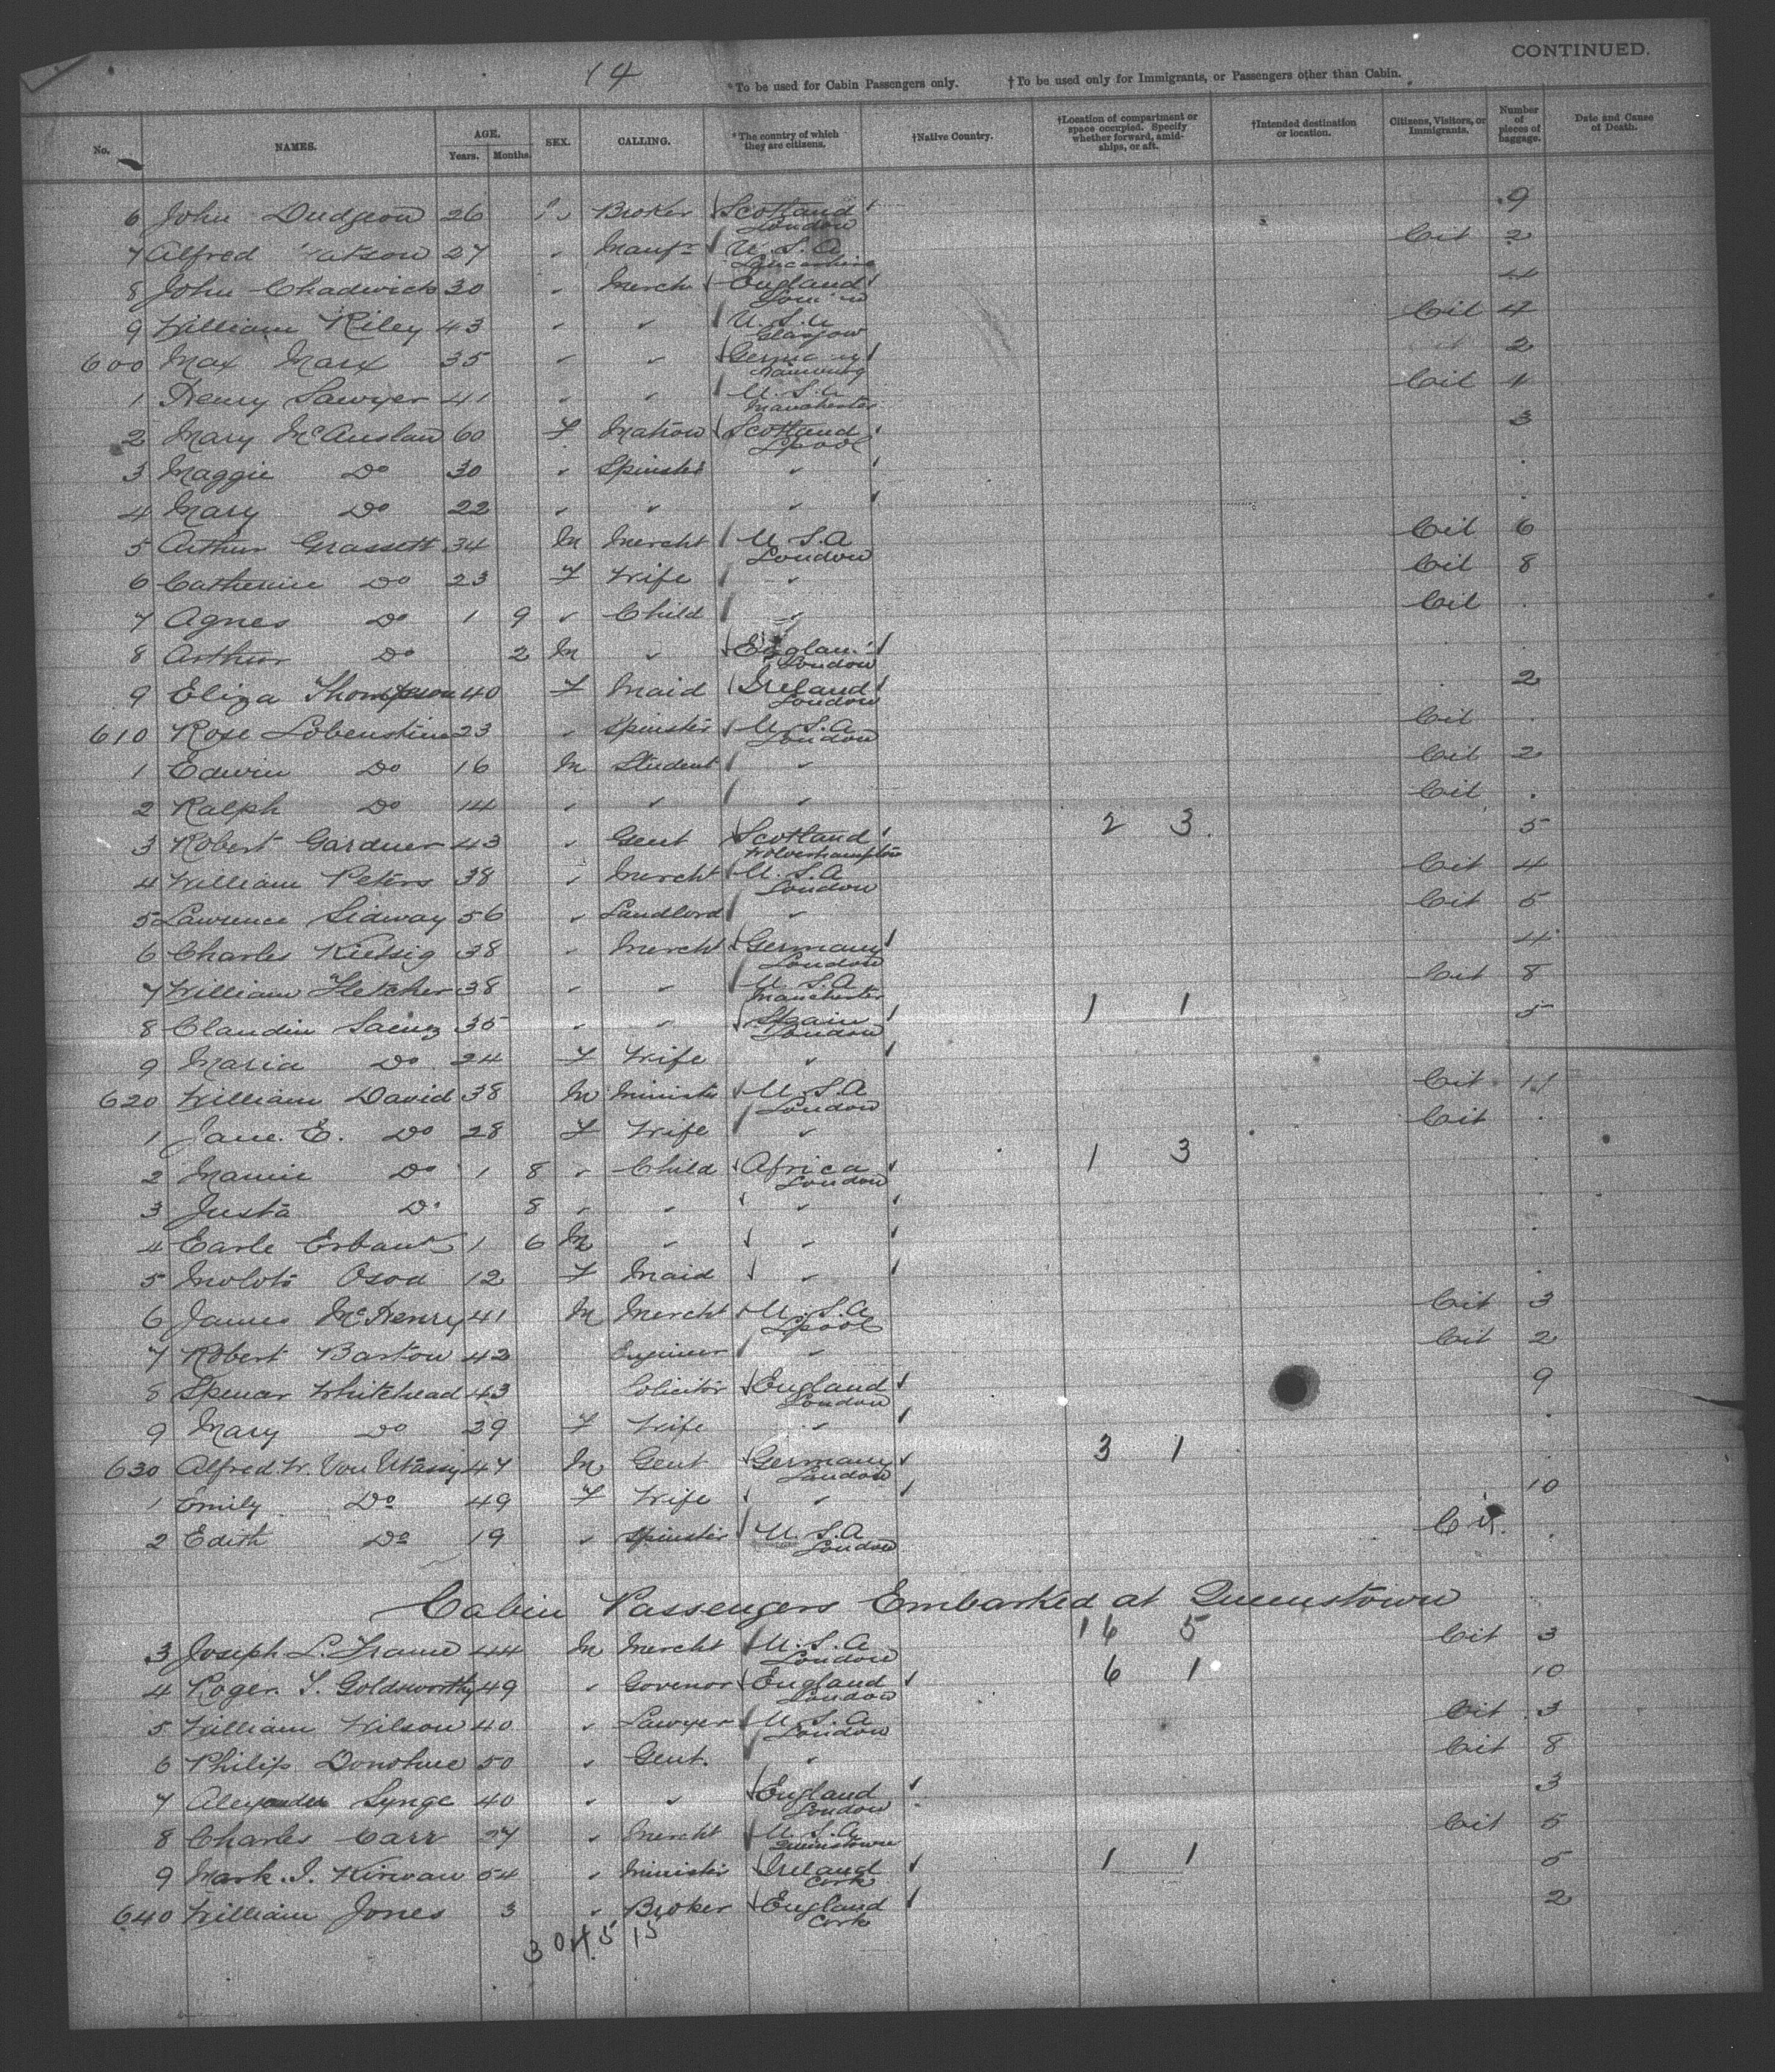 CONTINUED.
14
*To be used for Cabin Passengers only. †To be used only for Immigrants, or Passengers other than Cabin.
No. NAMES. AGE. Years. Months. SEX. CALLING. *The country of which they are citizens. †Native Country. †Location of compartment or space occupied. Specify whether forward, amidships, or aft. †Intended destination or location. Citizens, Visitors, or Immigrants. Number of pieces of baggage. Date and Cause of Death.
6 John Dudgeon 26 Broker Scotland 9
London
7 Alfred atson 27 Manufr U.S.A Cit 2
Lancashire
8 John Chadwick 30 Merch England 4
London
9 William Riley 43 U.S.A Cit 4
Glasgow
600 Max Marx 35 Germany 2
1 Henry Sawyer 41 U.S.A Cit 4
Manchester
2 Mary McAuslan 60 F Matron Scotland 3
Lpool
3 Maggie Do 30 Spinster
4 Mary Do 22
5 Arthur Grassett 34 M Mercht U.S.A Cit 6
London
6 Catherine Do 23 F Wife Cit 8
7 Agnes Do 1 9 Child Cit
8 Arthur Do 2 M Englan
London
9 Eliza Thompson 40 F Maid Ireland 2
London
610 Rose Lobenstine 23 Spinster U.S.A Cit
London
1 Edwin Do 16 M Student Cit 2
2 Ralph Do 14 Cit
3 Robert Gardner 43 Gent Scotland 2 3 5
Wolverhampton
4 William Peters 38 Mercht U.S.A Cit 4
London
5 Lawrence Sidway 56 Landlord Cit 5
6 Charles Kietsig 38 Mercht Germany 4
London
7 William Fletcher 38 U.S.A Cit 8
Manchester
8 Claudin Saenz 35 Spain 1 1 5
London
9 Maria Do 24 F Wife
620 William David 38 M Minister U.S.A Cit 11
London
1 Jane. E. Do 28 F Wife Cit
2 Mamie Do 1 8 Child Africa 1 3
London
3 Justa Do 8
4 Earle 1 6 M
5 Osod 12 F Maid
6 James McHenry 41 M Mercht U.S.A Cit 3
Lpool
7 Robert Barton 42 Engineer Cit 2
8 Spencer Whitehead 43 Solicitor England 9
London
9 Mary Do 39 F Wife
630 Alfred. W. Von Utassy 47 M Gent Germany 3 1
London
1 Emily Do 49 F Wife 10
2 Edith Do 19 Spinster U.S.A Cit.
London
Cabin Passengers Embarked at Queenstown
3 Joseph L. Frame 44 M Mercht U.S.A 16 5 Cit 3
London
4 Roger. T. Goldsworthy 49 Govenor England 6 1 10
London
5 William Wilson 40 Lawyer U.S.A Cit 3
London
6 Philip Donohue 50 Gent. Cit 8
7 Alexander Synge 40 England 3
London
8 Charles Carr 27 Mercht U.S.A Cit 5
Queenstown
9 Mark. I. Kirwan 54 Minister Ireland 1 1 5
Cork
640 William Jones 3 Broker England 2
Cork